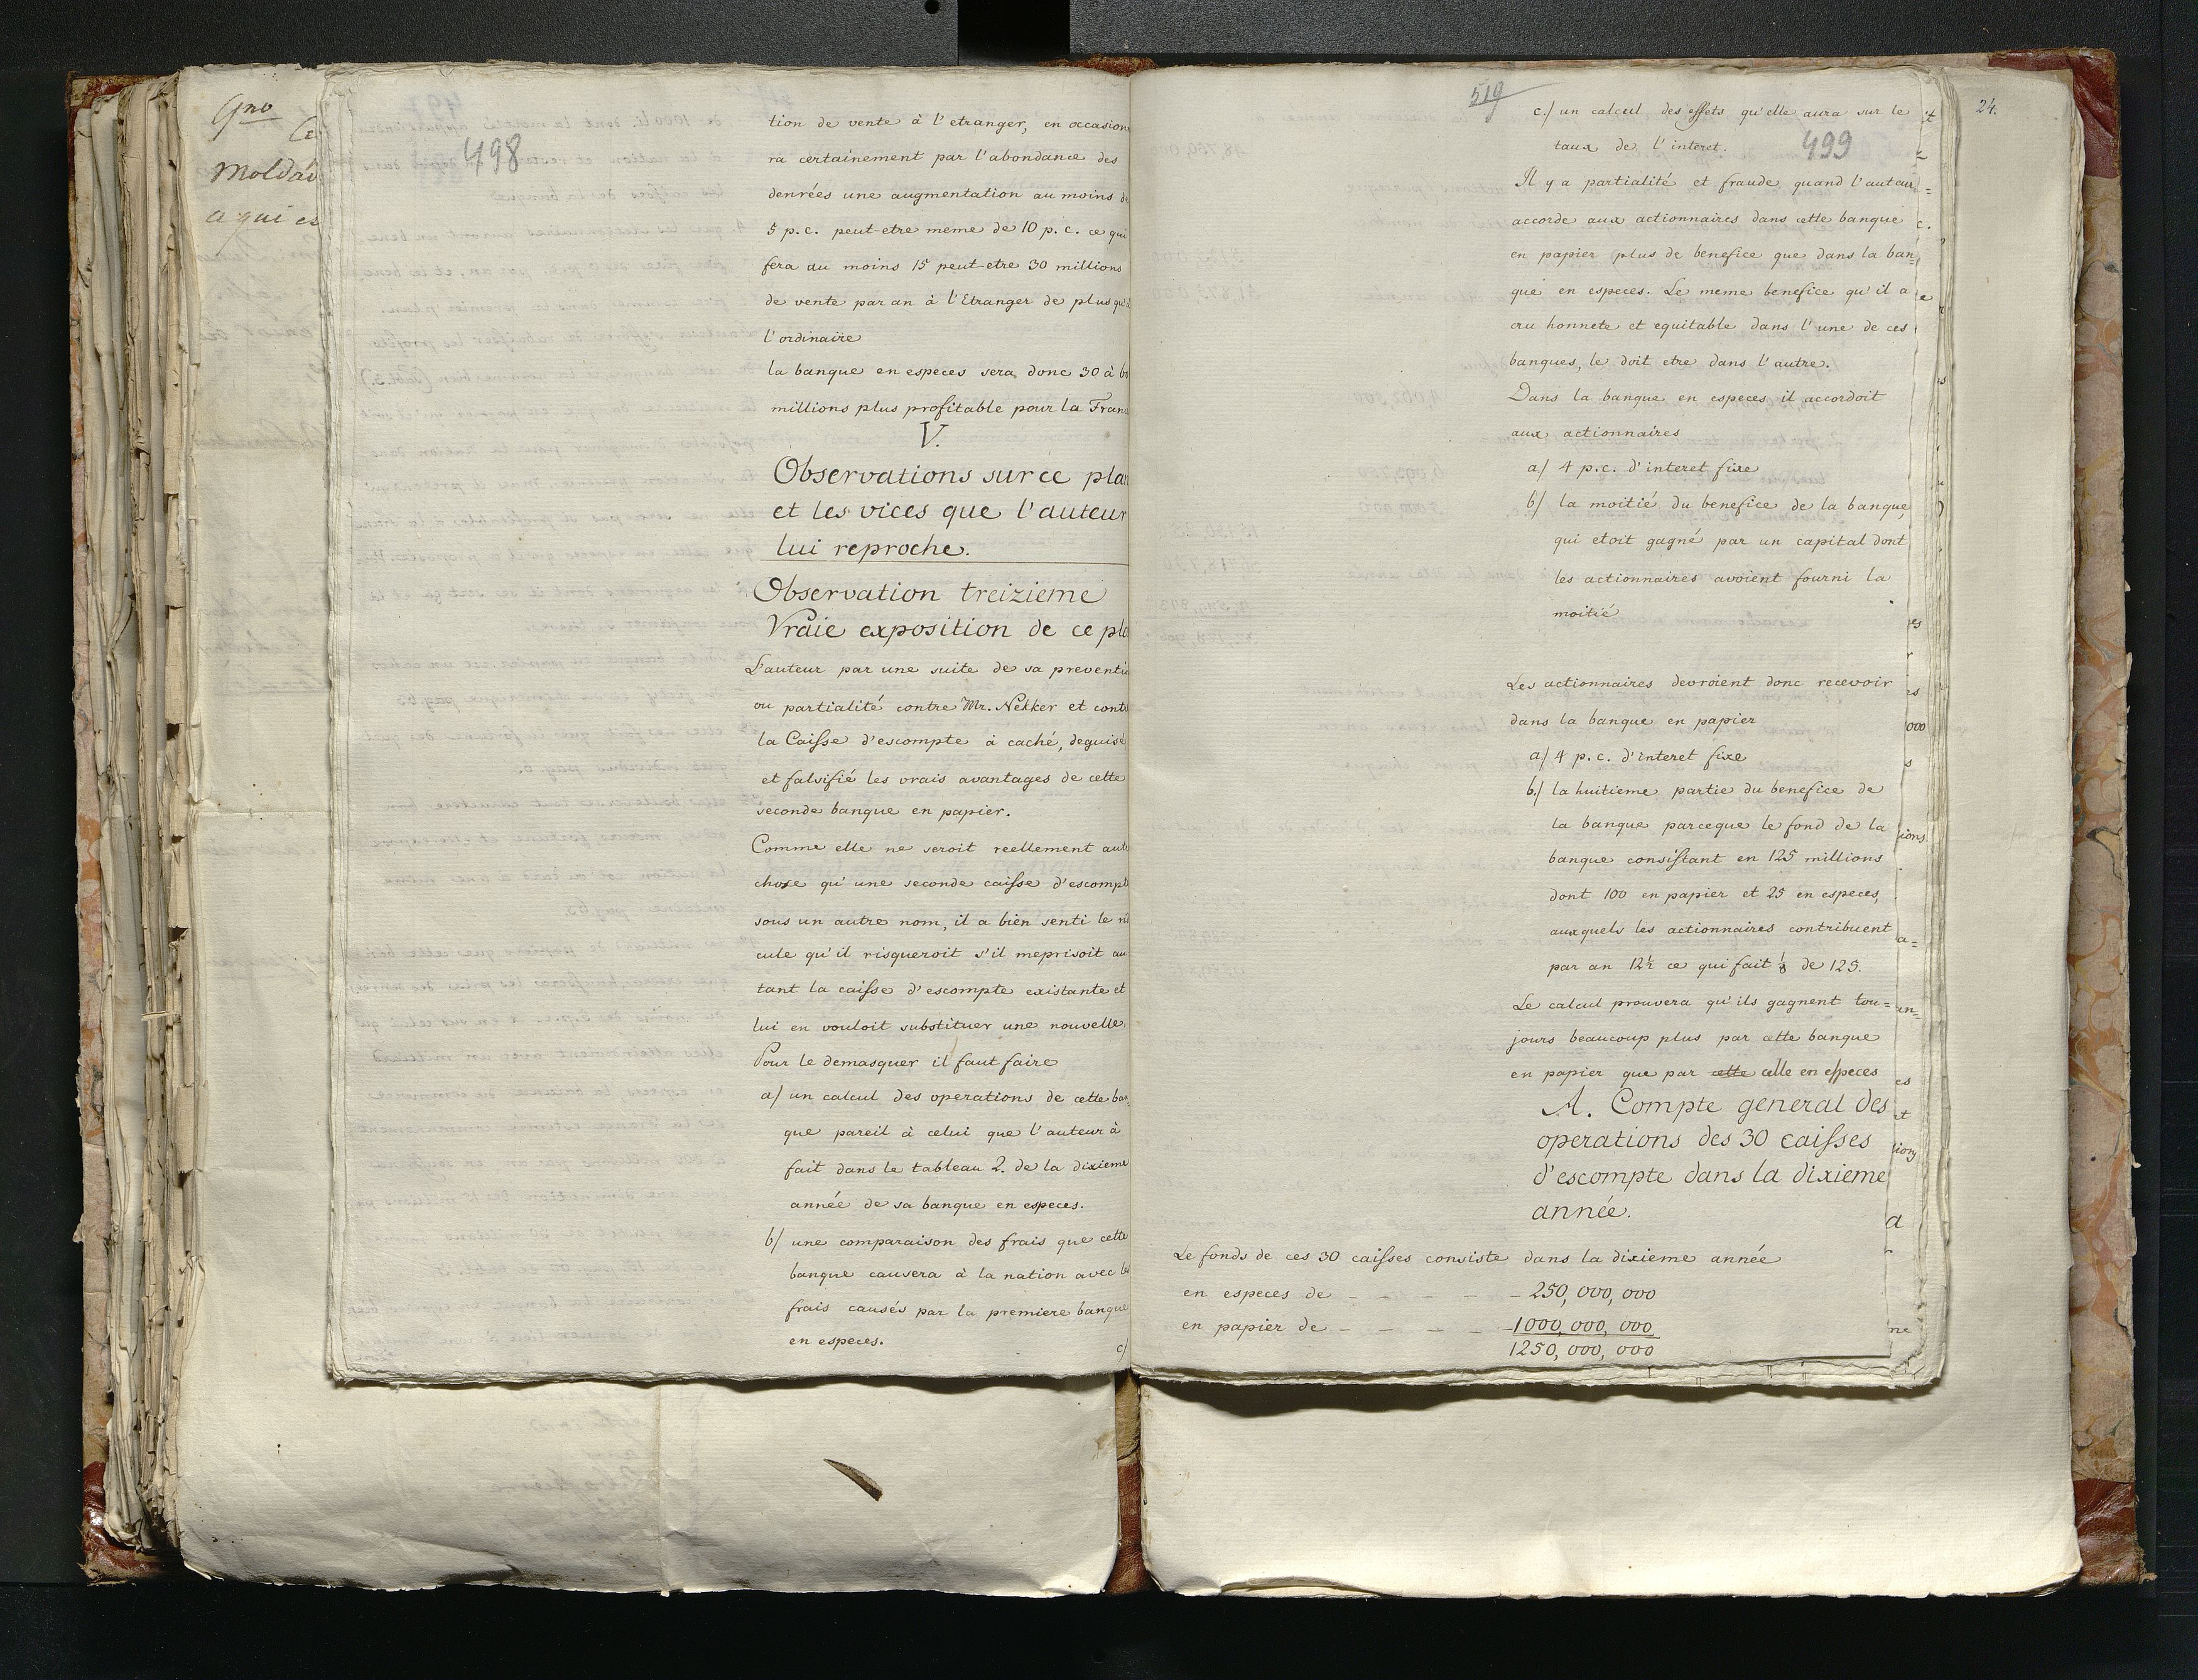 498
tion de vente à l'etranger, en occasion
ra certainement par l'abondance des
denrées une augmentation au moins de
5 p.c. peut-etre meme de 10 p.c. ce qui
fera au moins 15 peut-etre 30 millions
de vente par an à l'Etranger de plus qu'à
l'ordinaire
la banque en especes sera donc 30 à
millions plus profitable pour la Fran
V.
Observations sur ce plan
et les vices que l'auteur
lui reproche.
Observation treizieme
Vraie exposition de ce pla
L'auteur par une suite de sa preventio
ou partialité contre Mr. Nekker et cont
la Caisse d'escompte à caché, deguisé
et falsifié les vrais avantages de cette
seconde banque en papier.
Comme elle ne seroit reellement aut
chose qu'une seconde caisse d'escompt
sous un autre nom, il a bien senti le ri
cule qu'il risqueroit s'il meprisoit au
tant la caisse d'escompte existante et
lui en vouloit substituer une nouvelle.
Pour le demasquer il faut faire
a/ un calcul des operations de cette ban
que pareil à celui que l'auteur à
fait dans le tableau 2. de la dixieme
année de sa banque en especes.
b/ une comparaison des frais que cette
banque causera à la nation avec les
frais causés par la premiere banque
en especes.
c/
519
499
24.
c./ un calcul des effets qu'elle aura sur le
taux de l'interet.
Il y a partialité et fraude quand l'auteur
accorde aux actionnaires dans cette banque
en papier plus de benefice que dans la ban=
que en especes. Le meme benefice qu'il a
cru honnete et equitable dans l'une de ces
banques, le doit etre dans l'autre.
Dans la banque en especes il accordoit
aux actionnaires
a/ 4 p.c. d'interet fixe
b/ la moitié du benefice de la banque,
qui etoit gagné par un capital dont
les actionnaires avoient fourni la
moitié
Les actionnaires devroient donc recevoir
dans la banque en papier
a/ 4 p.c. d'interet fixe
b/ la huitieme partie du benefice de
la banque parceque le fond de la
banque consistant en 125 millions
dont 100 en papier et 25 en especes,
auxquels les actionnaires contribuent
par an 12½ ce qui fait ⅛ de 125.
Le calcul prouvera qu'ils gagnent tou=
jours beaucoup plus par cette banque
en papier que par cette celle en especes
A. Compte general des
operations des 30 caisses
d'escompte dans la dixieme
année.
Le fonds de ces 30 caisses consiste dans la dixieme année
en especes de - - - - - 250,000,000
en papier de - - - - - 1000,000,000
1250,000,000